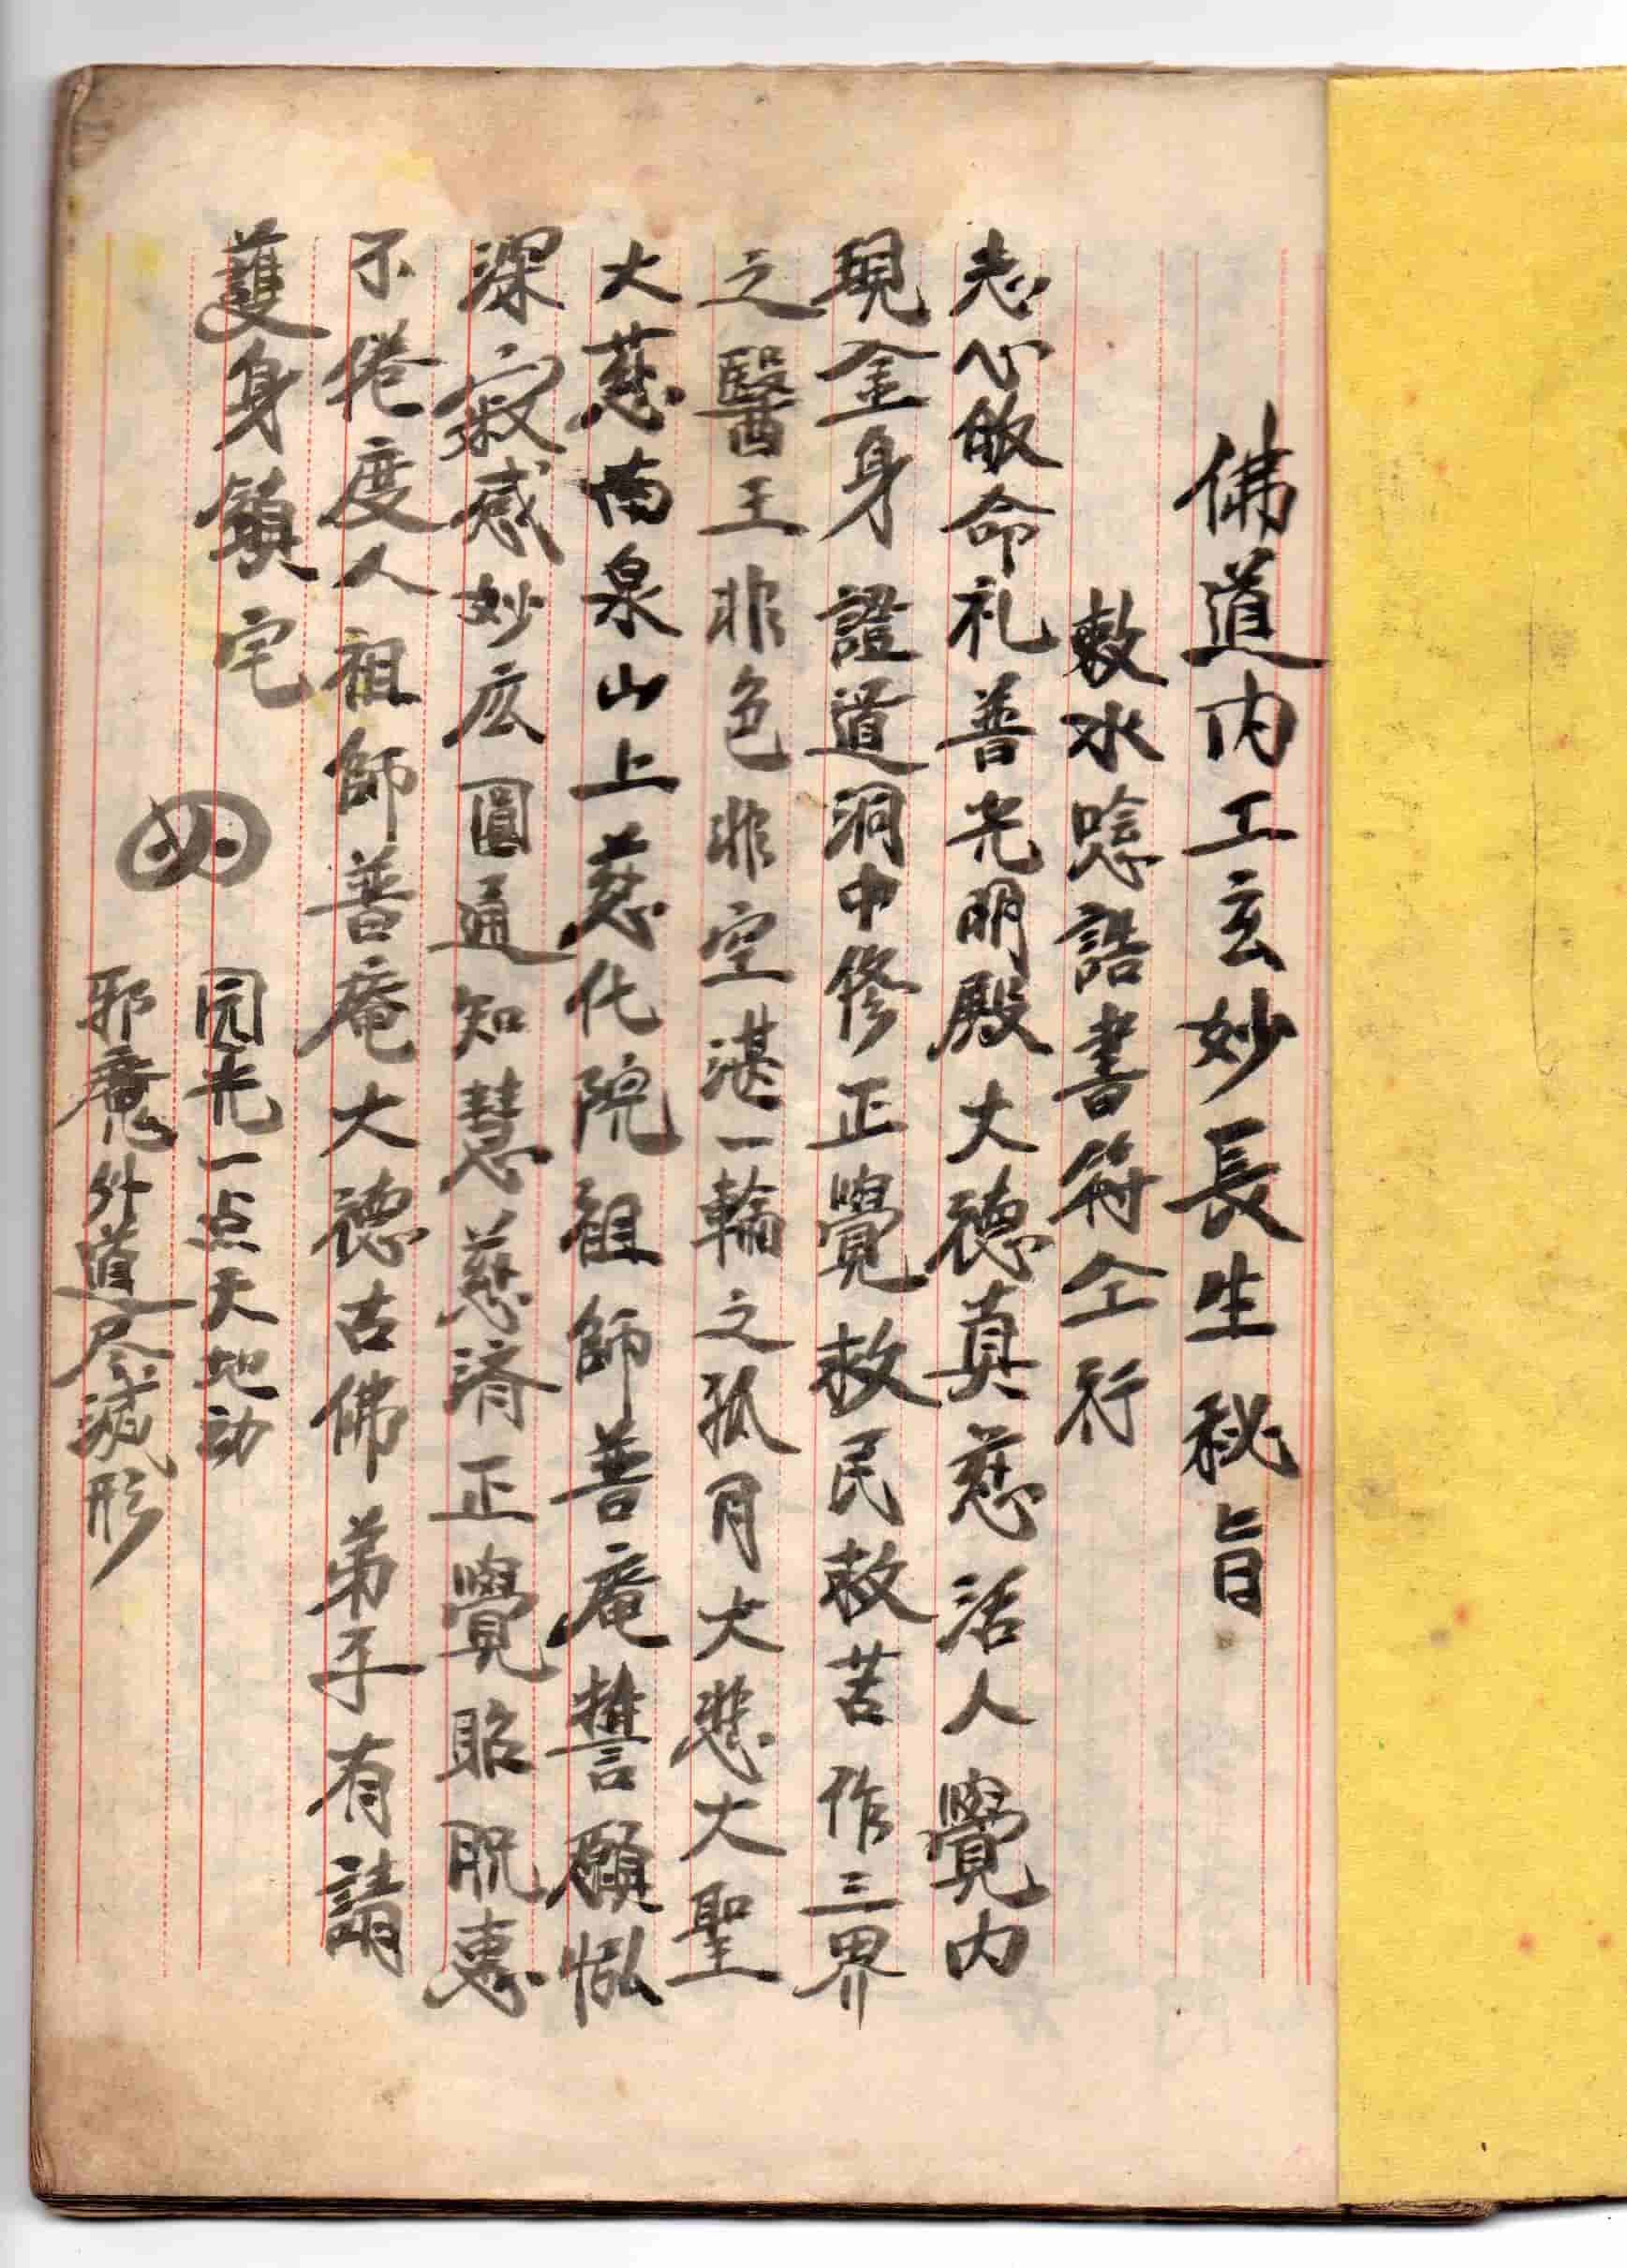 佛道内工玄妙長生秘旨
敕水唸誥書符仝行
志心皈命礼普光明殿大德真慈活人覺内
現金身證道洞中修正覺救民救苦作三界
之醫王非色非空湛一輪之孤月大悲大聖
大慈南泉山上慈化院祖師普庵誓願泓
深寂感妙应圓通知慧慈濟正覺昭貺惠
不倦度人祖師普庵大德古佛弟子有請
護身鎮宅
园光一点天地动
邪魔外道尽滅形